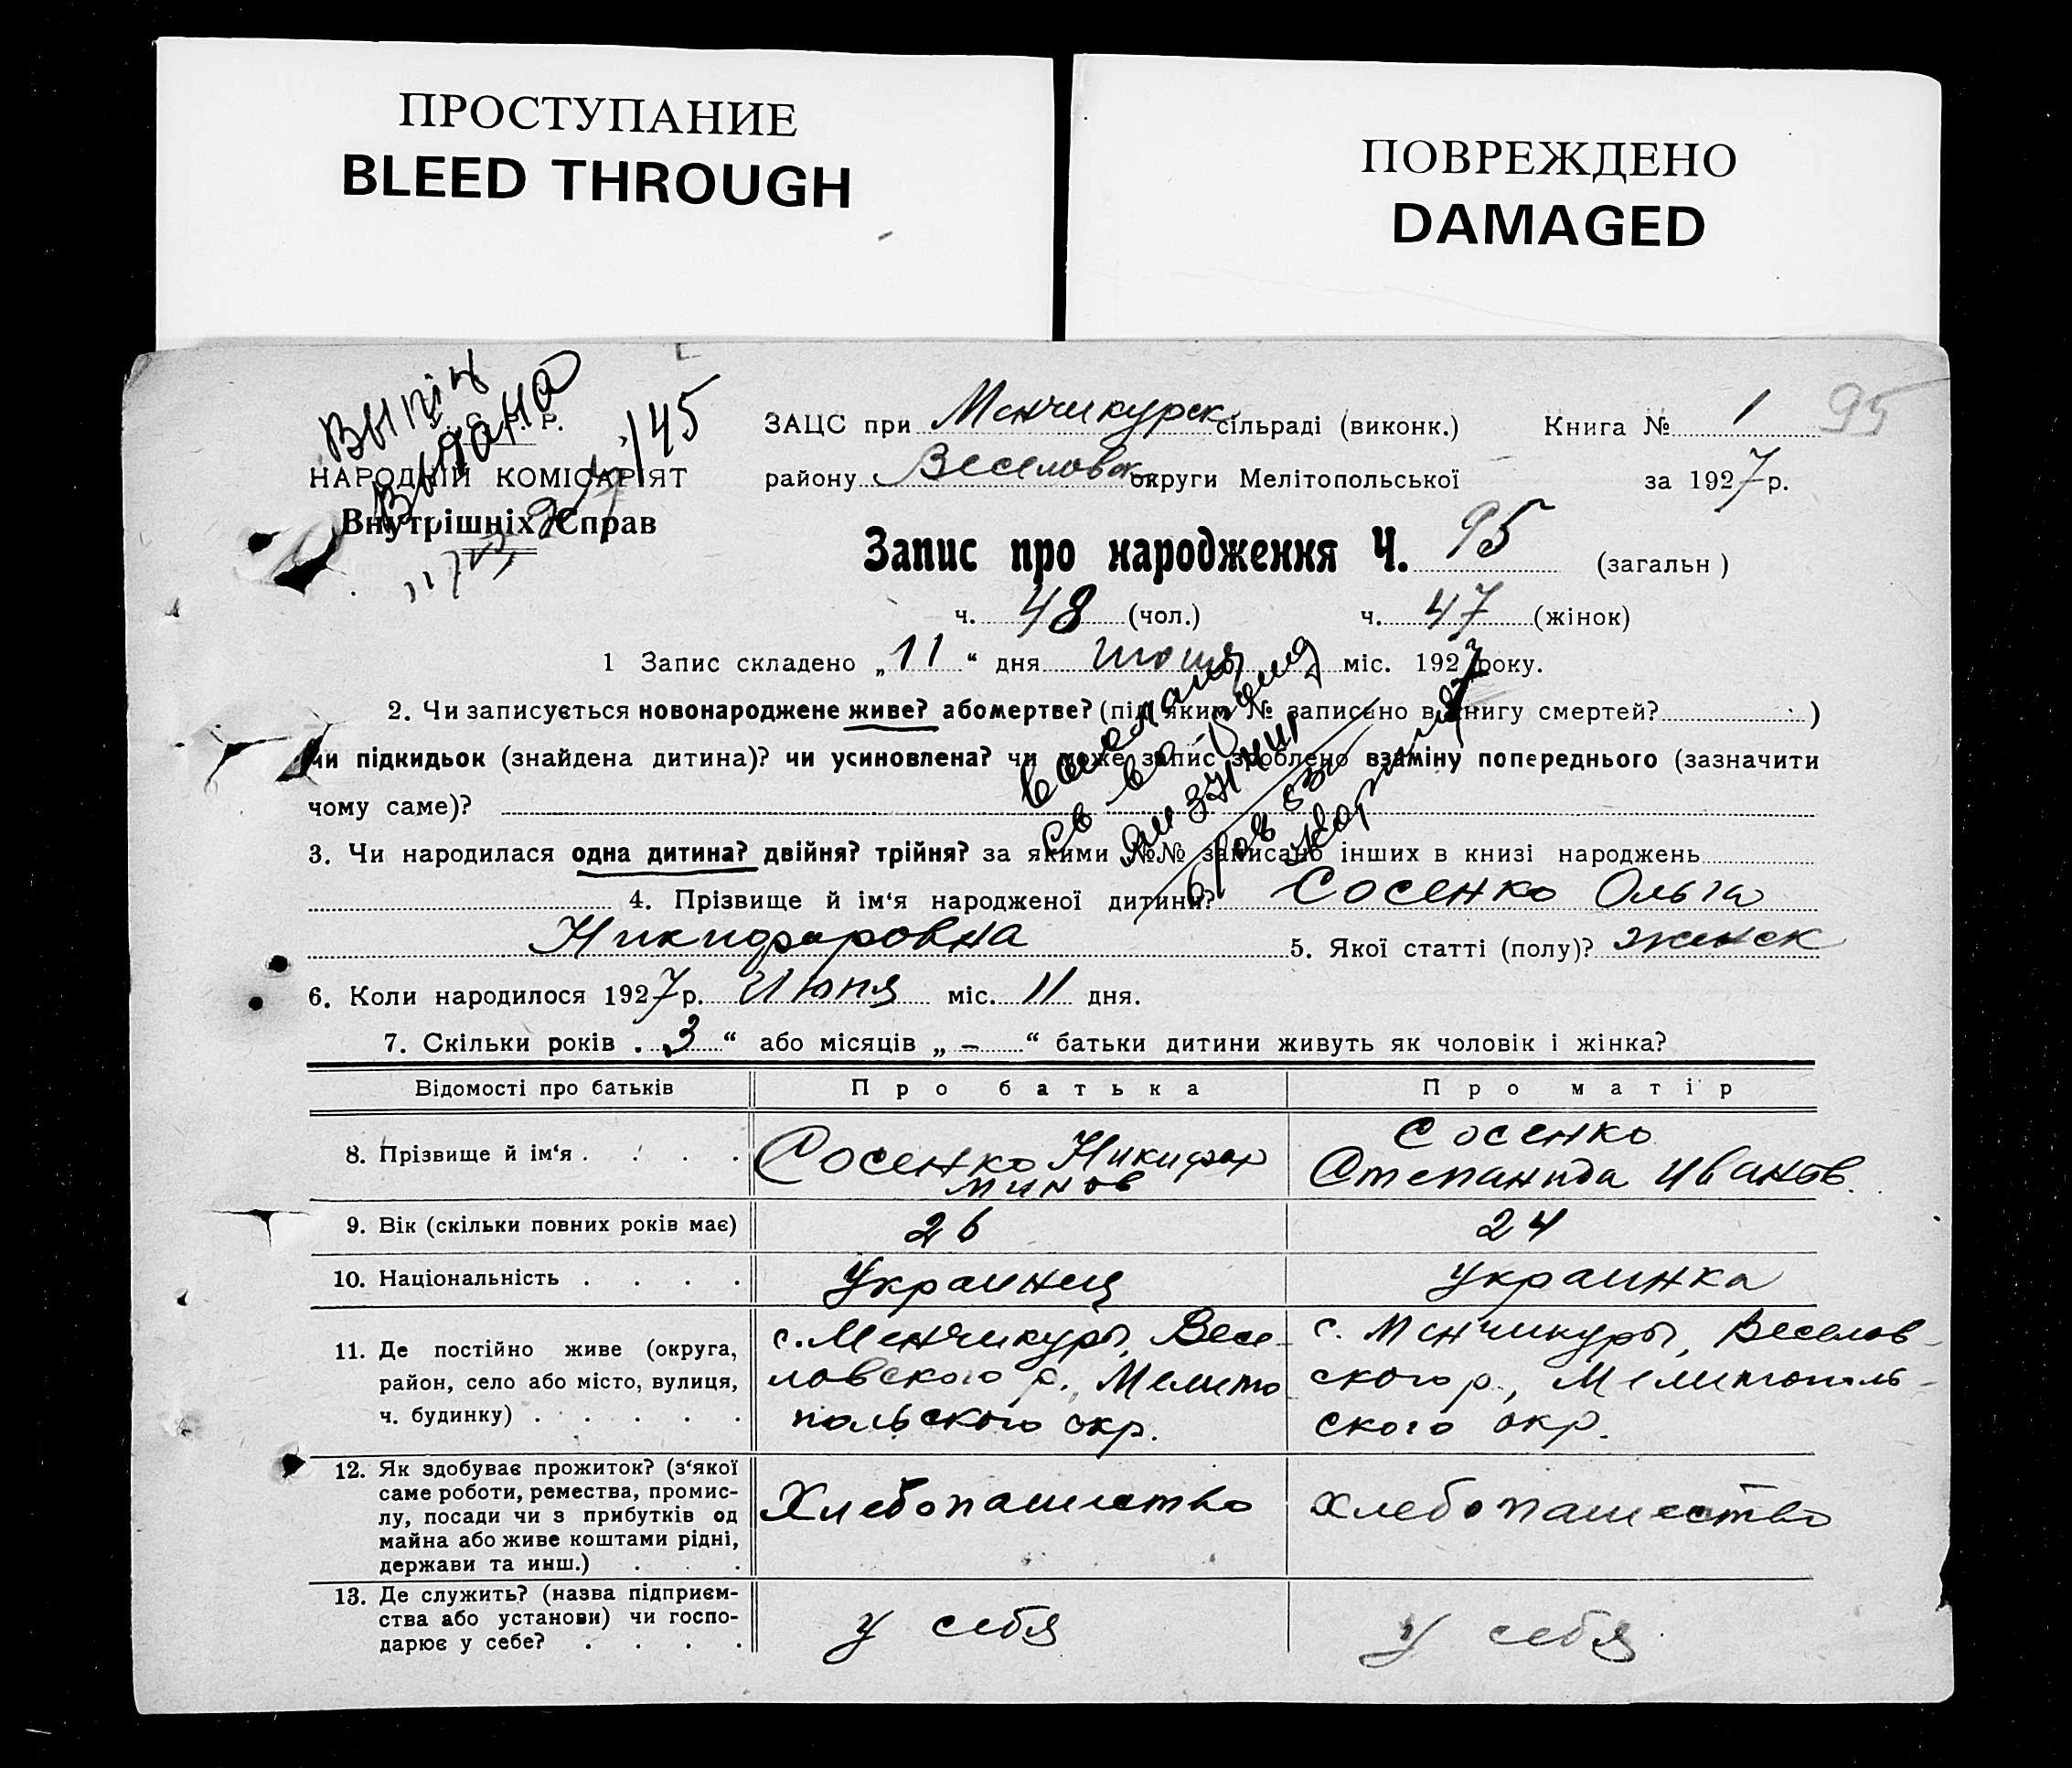 ПРОСТУПАНИЕ
BLEED THROUGH
ПОВРЕЖДЕНО
DAMAGED
Выдана
145
Р. Р.
НАРОДНІЙ КОМІСАРІЯТ
Внутрішніх Справ
ЗАЦС при Менчикурск. сільраді (виконк.) Книга № 1 95
району Веселовск округи Мелітопольської за 1927 р.
Запис про народження Ч. 95 (загальн)
ч. 48 (чол.) ч. 47 (жінок)
1 Запис складено „11“ дня июня міс. 1927 року.
2. Чи записується новонароджене живе? або мертве? (під яким № записано в книгу смертей? )
чи підкидьок (знайдена дитина)? чи усиновлена? чи може запис зроблено взаміну попереднього (зазначити
чому саме)?
3. Чи народилася одна дитина? двійня? трійня? за якими №№ записано інших в книзі народжень
4. Прізвище й ім‘я народженої дитини? Сосенко Ольга
Никифоровна 5. Якої статті (полу)? женск
6. Коли народилося 1927 р. Июня міс. 11 дня.
7. Скільки років „3“ або місяців „–“ батьки дитини живуть як чоловік і жінка?
Відомості про батьків Про батька Про матір
8. Прізвище й ім‘я . . . . Сосенко Никифор Минов Сосенко Степанида Иванов.
9. Вік (скільки повних років має) 26 24
10. Національність . . . . Украинец украинка
11. Де постійно живе (округа, с. Менчикуры, Весе- с. Менчикуры, Веселов-
район, село або місто, вулиця, ловского р. Мелито ского р., Мелитополь-
ч. будинку) . . . . . польского окр. ского окр.
12. Як здобуває прожиток? (з‘якої
саме роботи, ремества, промис-
лу, посади чи з прибутків од Хлебопашество хлебопашество
майна або живе коштами рідні,
держави та инш.) . . .
13. Де служить? (назва підприєм-
ства або установи) чи госпо- у себя у себя
дарює у себе? . . . .